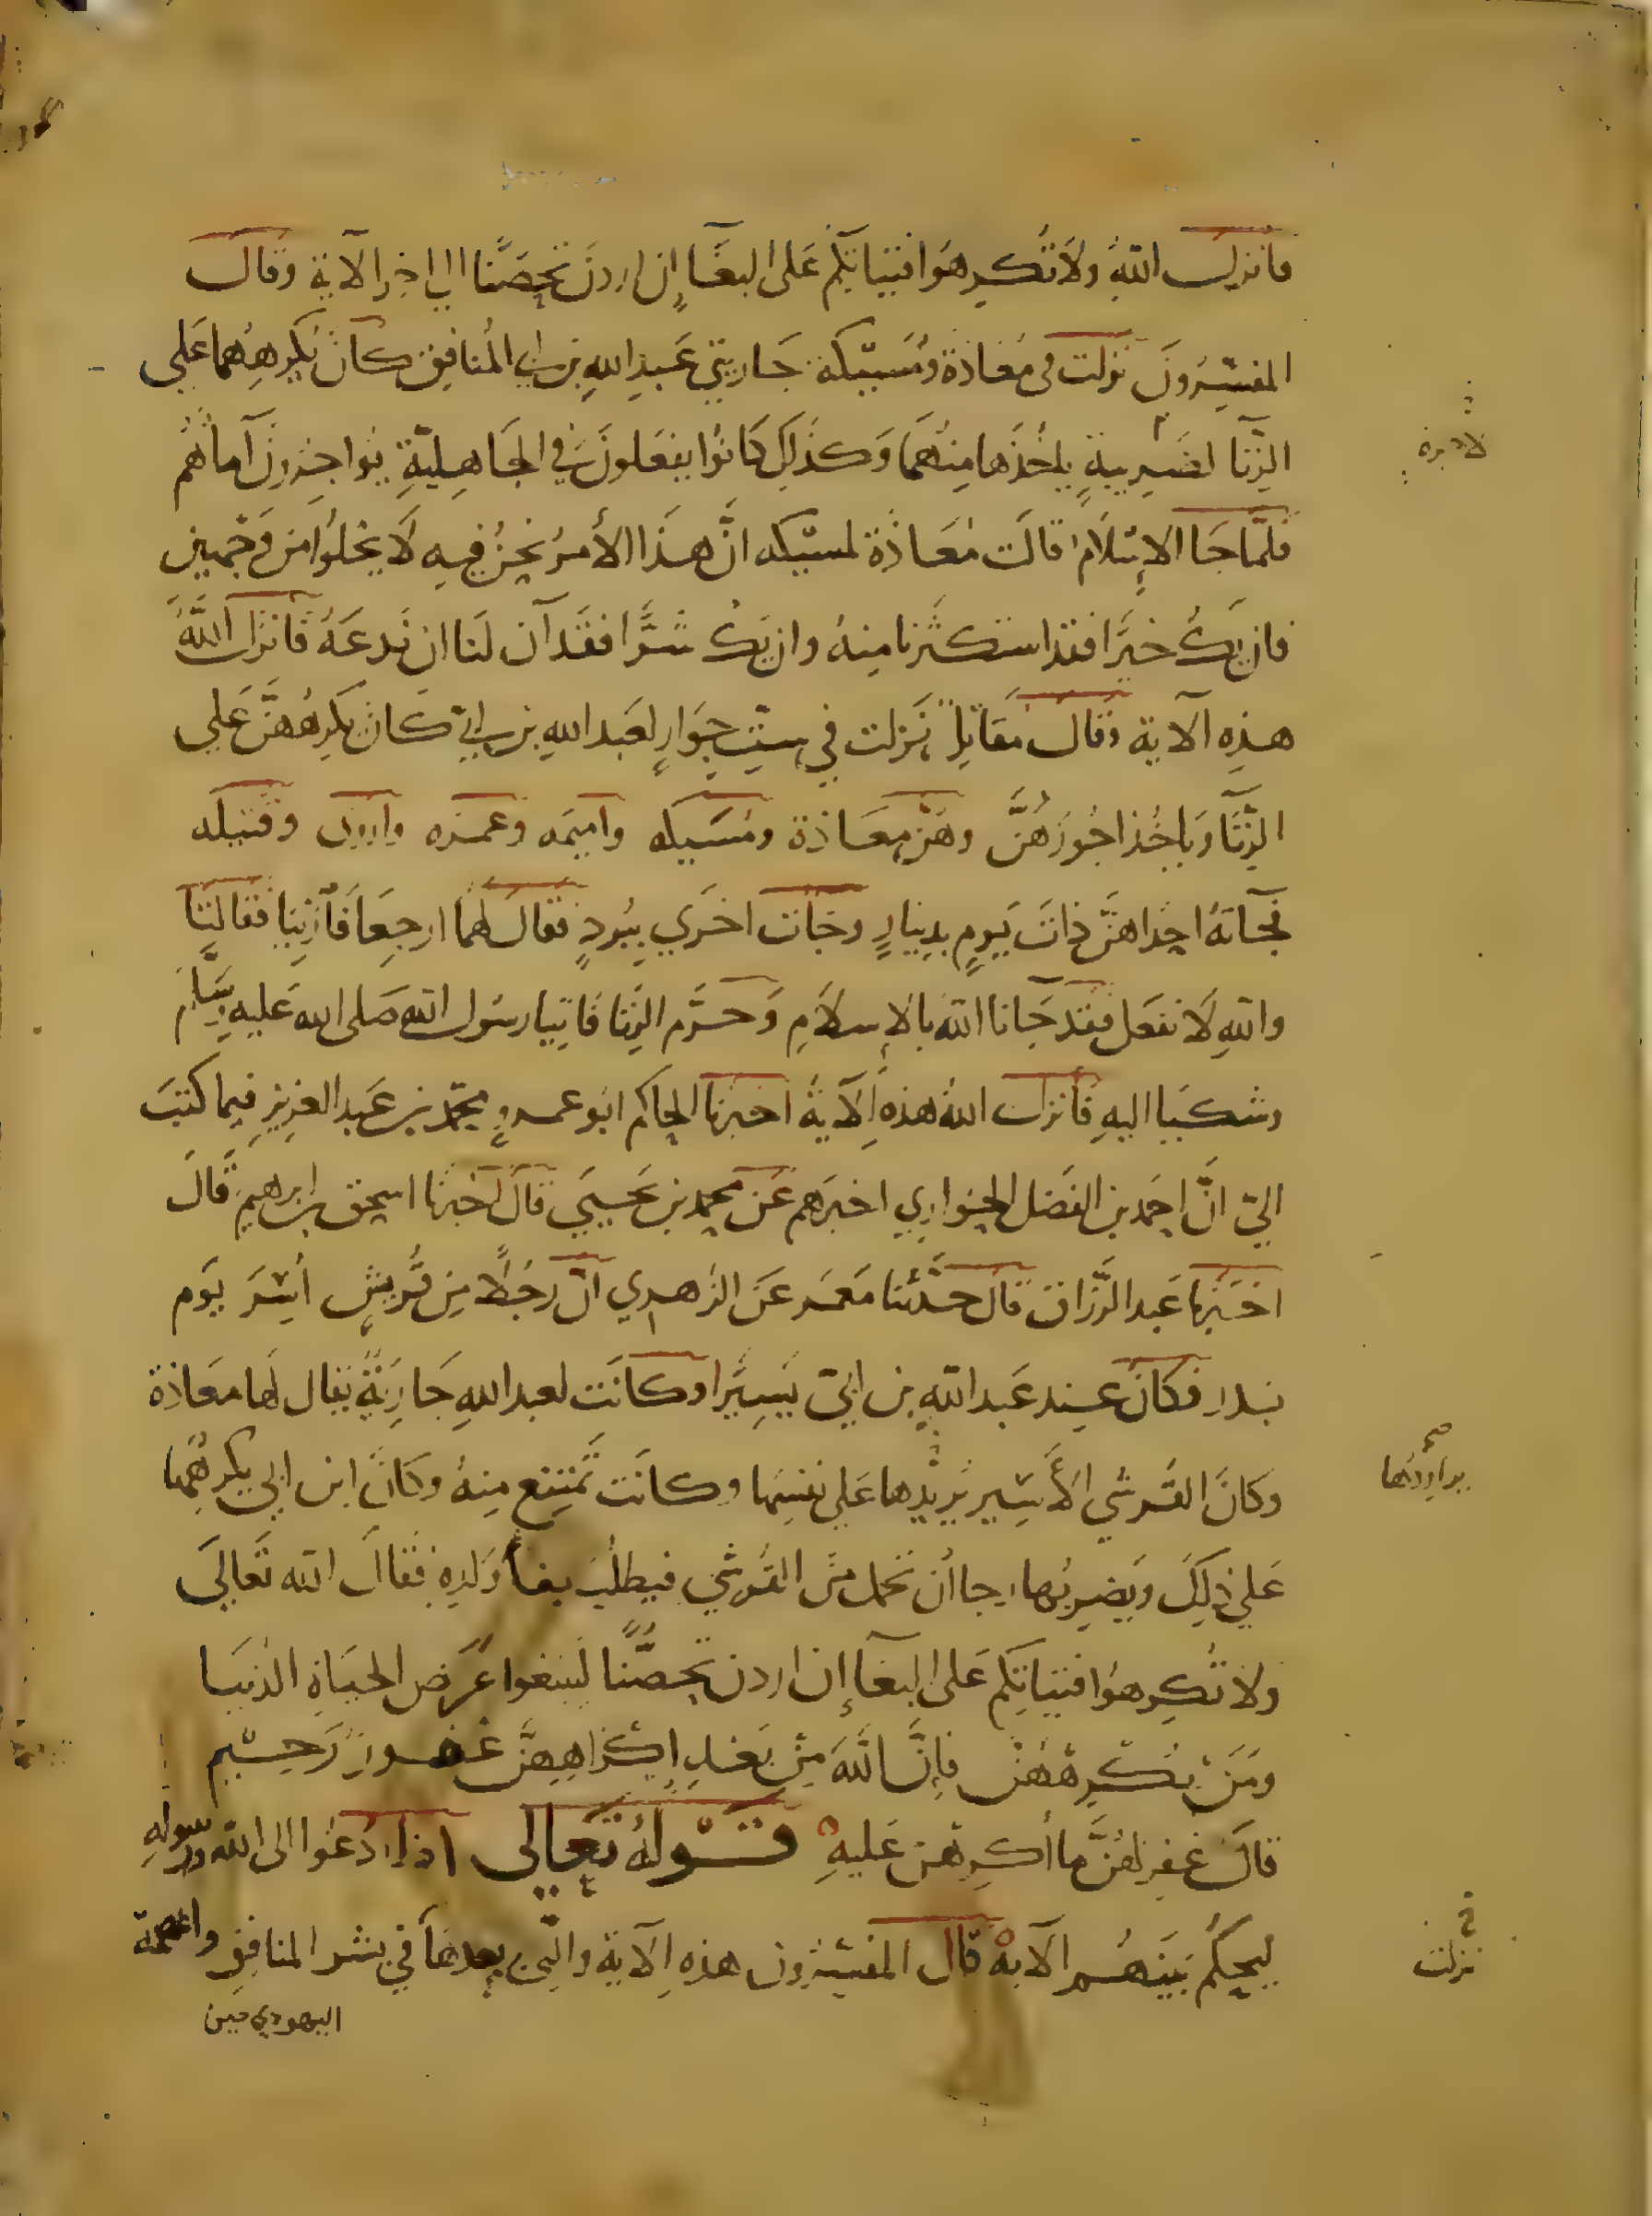 فانزل الله ولا تكرهوا فتياتكم على البغآ إن اردن تحصنا الى اخر الآية وقال
المفسرون نزلت في معاذة ومسيكة جاريتي عبد الله بن ابي المنافق كان يكرههما على
الزنا لضريبة ياخذها منهما وكذلك كانوا يفعلون في الجاهلية يواجرون آماهم
فلما جا الإسلام قالت معاذة لمسيكه ان هذا الأمر نحن فيه لا يخلوا من وجهين
فان يك خيرا فقد استكثرنا منه وان يك شرا فقد آن لنا ان ندعه فانزل الله
هذه الآية وقال مقاتل نزلت في ست جوار لعبد الله بن ابي كان يكرههن على
الزنا وياخذ اجورهن وهن معاذة ومسيكه واميمه وعمره واروى وقتيله
فجآته احداهن ذات يوم بدينار وجات اخرى ببرد فقال لهما ارجعا فازنيا فقالتا
والله لا نفعل فقد جانا الله بالاسلام وحرم الزنا فاتيا رسول الله صلى الله عليه وسلم
وشكيا اليه فأنزل الله هذه الآية اخبرنا الحاكم ابو عمرو محمد بن عبد العزيز فيما كتب
الي ان احمد بن الفضل الحدادي اخبرهم عن محمد بن يحيى قال اخبرنا اسحق بن ابرهيم قال
اخبرنا عبد الرزاق قال حدثنا معمر عن الزهري ان رجلا من قريش أسر يوم
بدر فكان عند عبد الله بن ابي يسيرا وكانت لعبد الله جارية يقال لها معاذة
وكان القرشي الأسير يريدها على نفسها وكانت تمتنع منه وكان ابن ابي يكرهها
على ذلك ويضربها رجا أن تحمل من القرشي فيطلب بفدآ ولده فقال الله تعالى
ولا تكرهوا فتياتكم على البغآ إن اردن تحصنا لتبتغوا عرض الحياة الدنيا
ومن يكرههن فإن الله من بعد إكراههن غفور رحيم
قال غفر لهن ما أكرهن عليه قوله تعالى اذا دعوا الى الله ورسوله
ليحكم بينهم الآيه قال المفسرون هذه الآية والتي بعدها في بشر المنافق وخصمه
اليهودي حين
يراودها
صح
نزلت